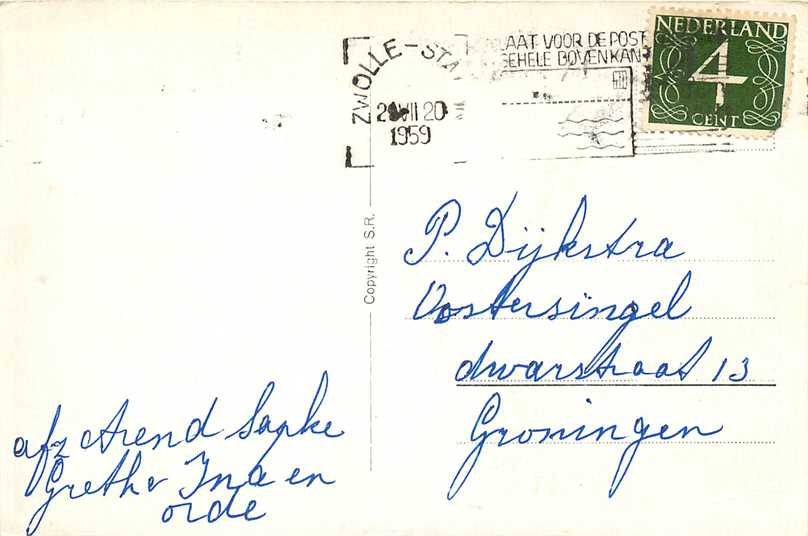 ZWOLLE-STA
2 VII 20
1959
LAAT VOOR DE POST
GEHELE BOVENKAN
NEDERLAND
4
CENT
Copyright S.R.
P. Dijkstra
Oostersingel
dwarsstraat 13
Groningen
afz Arend Sapke
Greth Ina en
orde